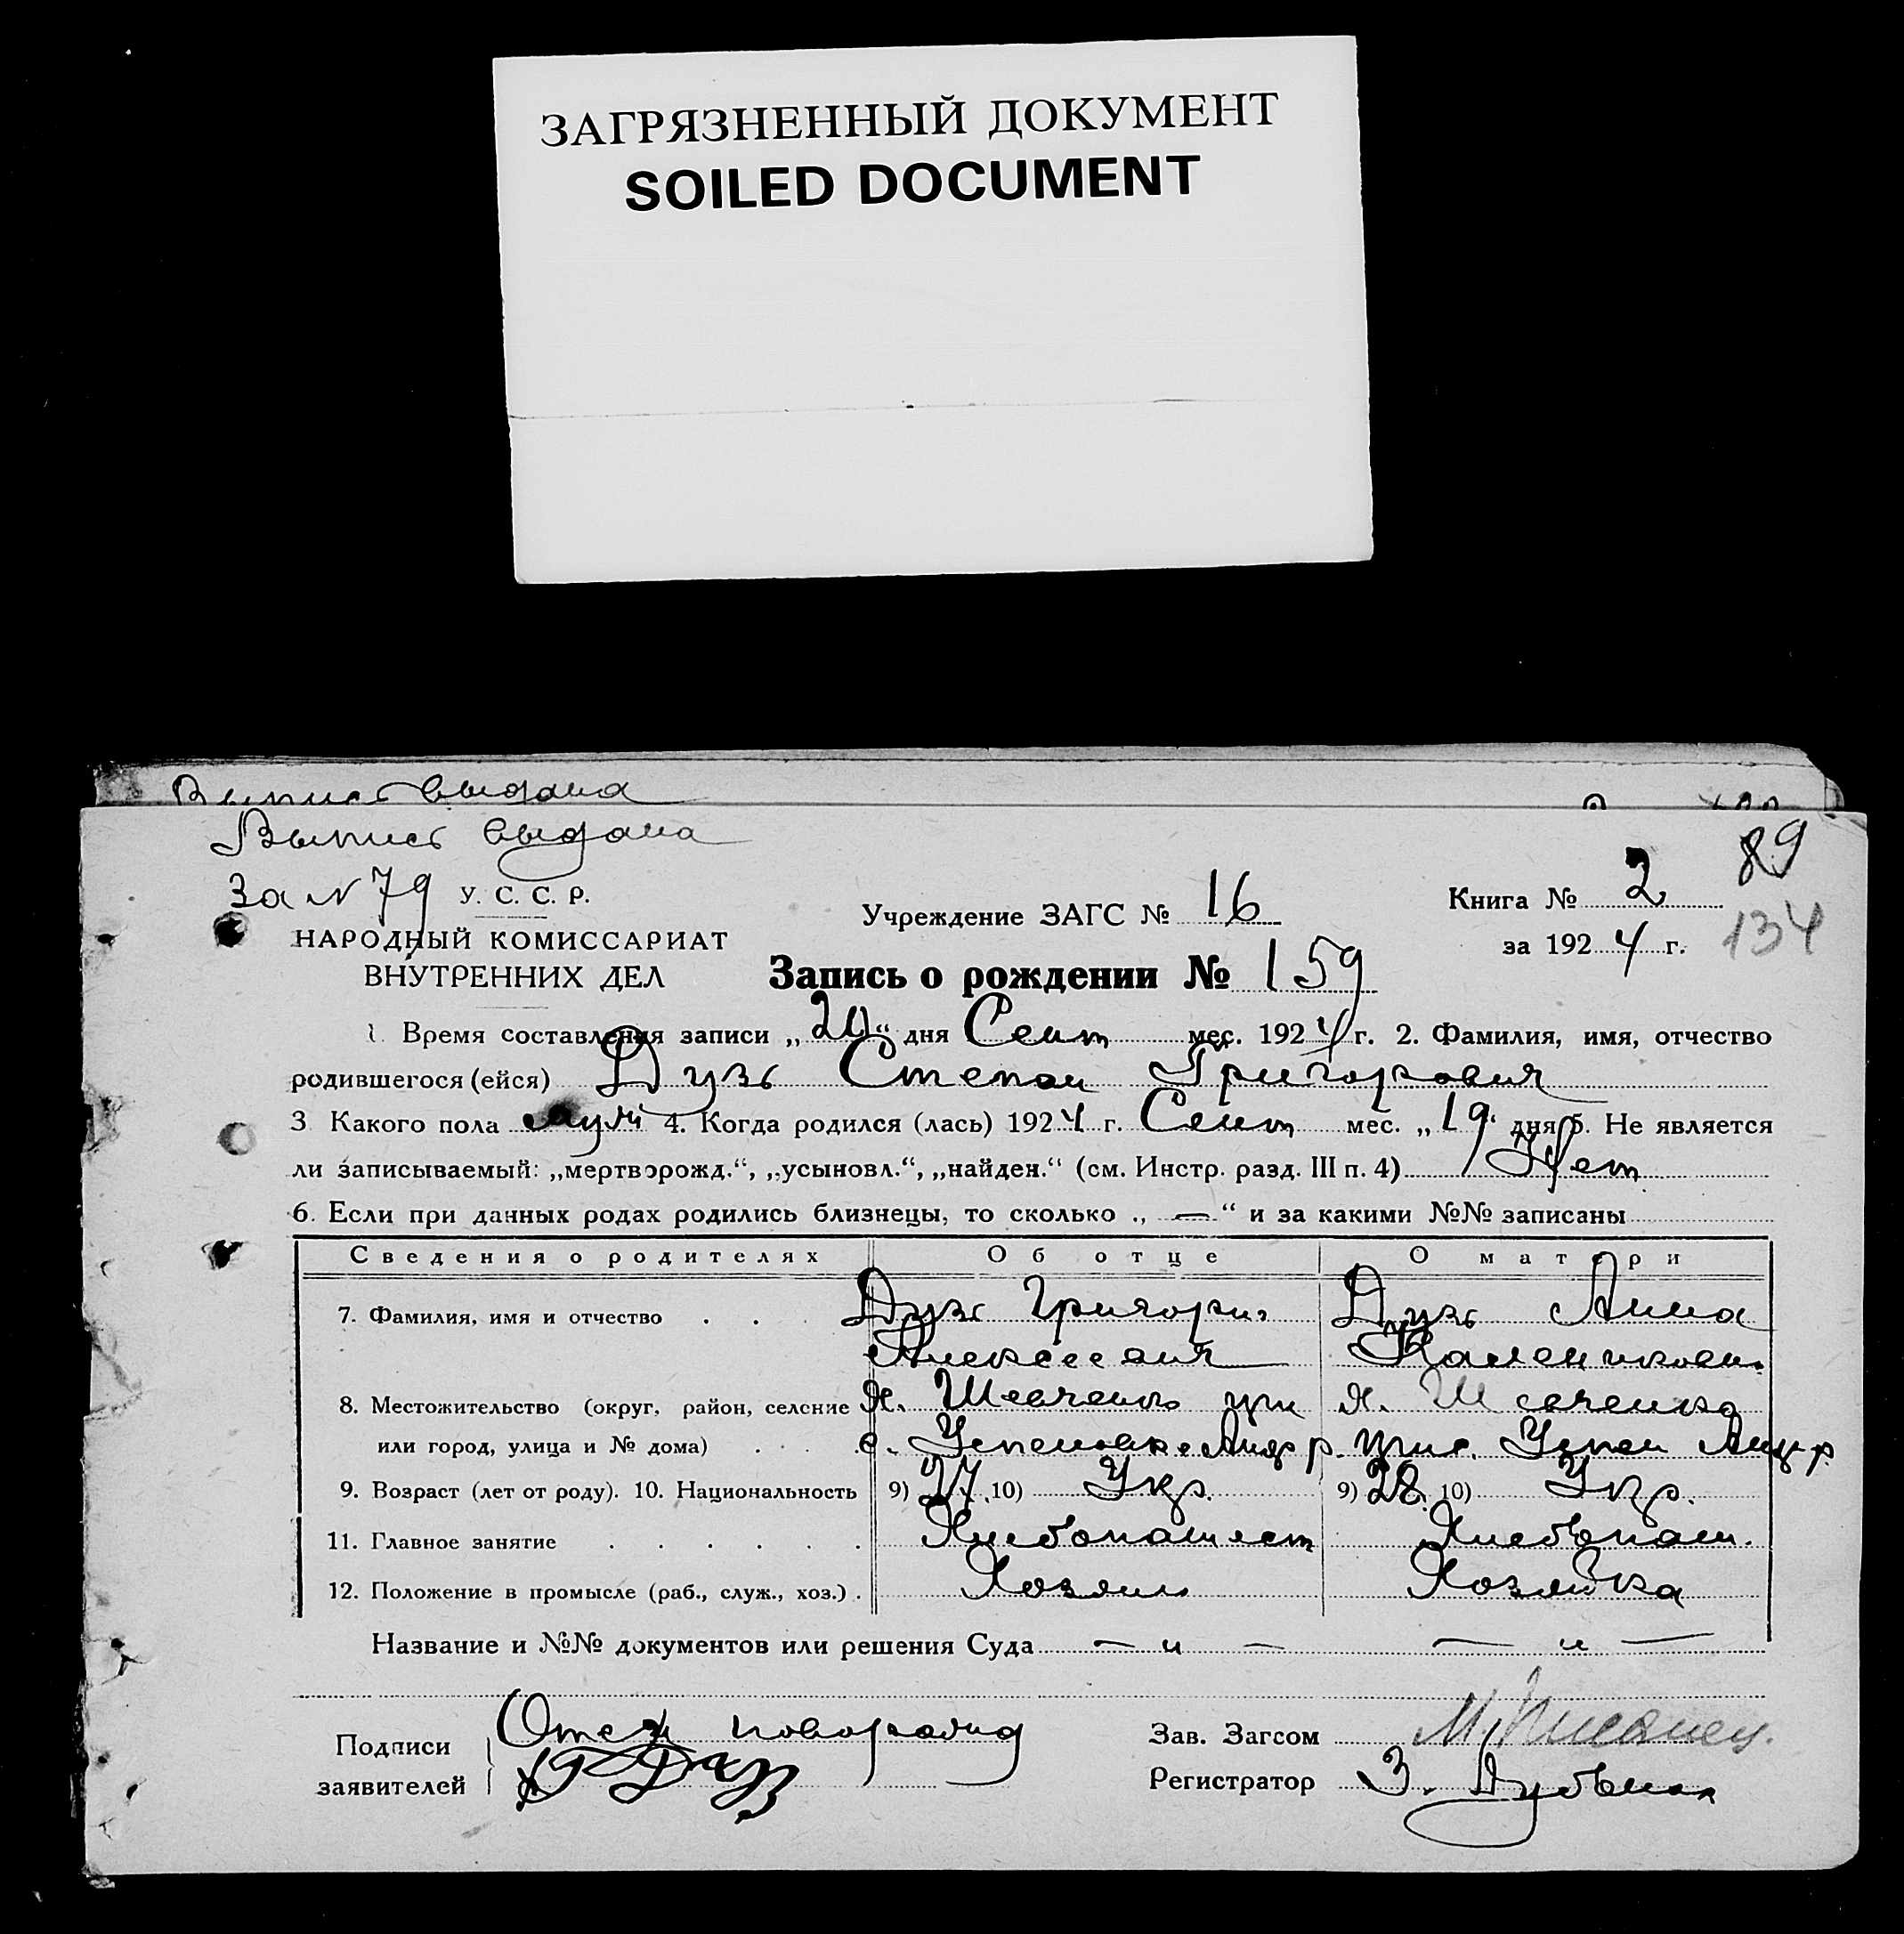 ЗАГРЯЗНЕННЫЙ ДОКУМЕНТ
SOILED DOCUMENT
Выпись выдана
Выпись выдана
89
За N 79 У. С. С. Р.
Учреждение ЗАГС № 16
Книга № 2
НАРОДНЫЙ КОМИССАРИАТ
за 1924 г.
134
ВНУТРЕННИХ ДЕЛ
Запись о рождении № 159
1. Время составления записи „20“ дня Сент мес. 1924 г. 2. Фамилия, имя, отчество
родившегося (ейся) Дузь Степан Григорович
3 Какого пола муж 4. Когда родился (лась) 1924 г. Сент мес. „19“ дня 5. Не является
ли записываемый: „мертворожд.“, „усыновл.“, „найден.“ (см. Инстр. разд. III п. 4) Нет
6. Если при данных родах родились близнецы, то сколько „—“ и за какими №№ записаны
Сведения о родителях Об отце О матери
7. Фамилия, имя и отчество . . . Дузь Григори Дузь Анна
Алексеевич
8. Местожительство (округ, район, селение х. Шевченко при х. Шевченко
или город, улица и № дома) . . . . с. Успеновке Андр р. при с. Успен Андр р.
9. Возраст (лет от роду). 10. Национальность 9) 27 10) Укр. 9) 28 10) Укр.
11. Главное занятие . . . . . . Хлебопашест Хлебопаш.
12. Положение в промысле (раб., служ., хоз.) . Хозяин Хозяйка
Название и №№ документов или решения Суда — и — — и —
Подписи Отец новорожд
Зав. Загсом
заявителей
Регистратор З.